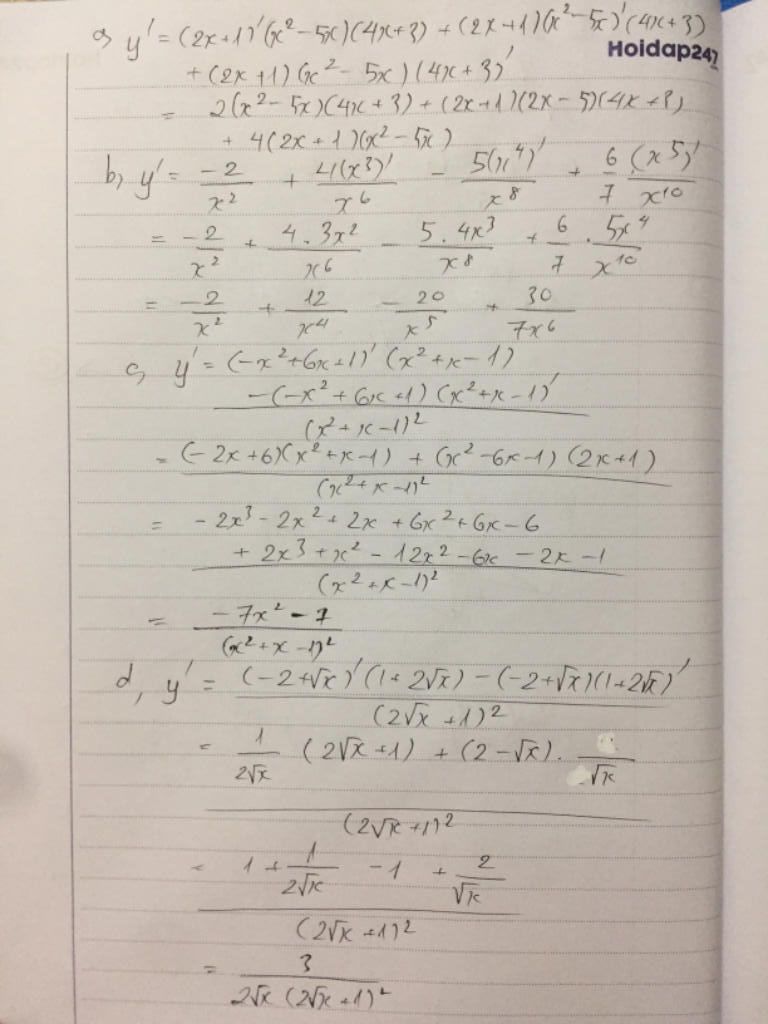 a, y' = (2x+1)'(x²-5x)(4x+3) + (2x+1)(x²-5x)'(4x+3)
Hoidap247
+ (2x+1)(x²-5x)(4x+3)'
= 2(x²-5x)(4x+3) + (2x+1)(2x-5)(4x+3)
+ 4(2x+1)(x²-5x)
b, y' = -2/x² + 4(x³)'/x⁶ - 5(x⁴)'/x⁸ + 6/7 (x⁵)'/x¹⁰
= -2/x² + 4.3x²/x⁶ - 5.4x³/x⁸ + 6/7 . 5x⁴/x¹⁰
= -2/x² + 12/x⁴ - 20/x⁵ + 30/7x⁶
c, y' = (-x²+6x+1)'(x²+x-1)
-(-x²+6x+1)(x²+x-1)'
(x²+x-1)²
= (-2x+6)(x²+x-1) + (x²-6x-1)(2x+1)
(x²+x-1)²
= -2x³-2x²+2x+6x²+6x-6
+ 2x³+x²-12x²-6x-2x-1
(x²+x-1)²
= -7x²-7
(x²+x-1)²
d, y' = (-2+√x)'(1+2√x)-(-2+√x)(1+2√x)'
(2√x+1)²
= 1/2√x (2√x+1) + (2-√x). /√x
(2√x+1)²
= 1 + 1/2√x - 1 + 2/√x
(2√x+1)²
= 3
2√x(2√x+1)²